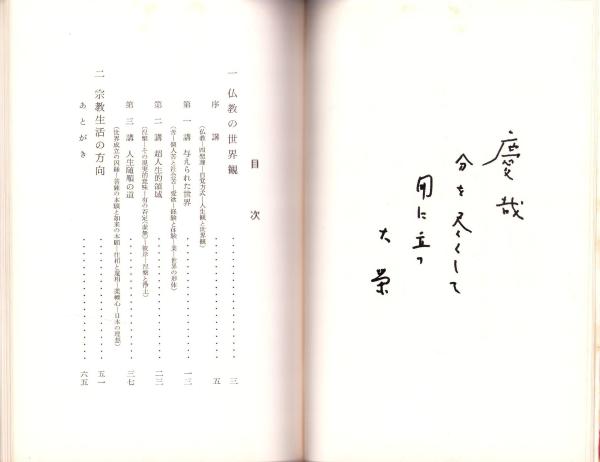 慶哉
分を尽くして
用に立つ
大榮
目次
一 仏教の世界観 三
序講 五
(仏教―四聖諦―自覚方式―人生観と世界観)
第一講 与えられた世界 一三
(苦―個人苦と社会苦―愛欲―経験と体験―業―世界の形体)
第二講 超人生的領域 二三
(涅槃―その現実的意味―有の否定(虚無)―彼岸―涅槃と浄土)
第三講 人生随順の道 三七
(世界成立の因縁―菩薩の本願と如来の本願―往相と還相―柔軟心―日本の理想)
二 宗教生活の方向 五一
あとがき 六五